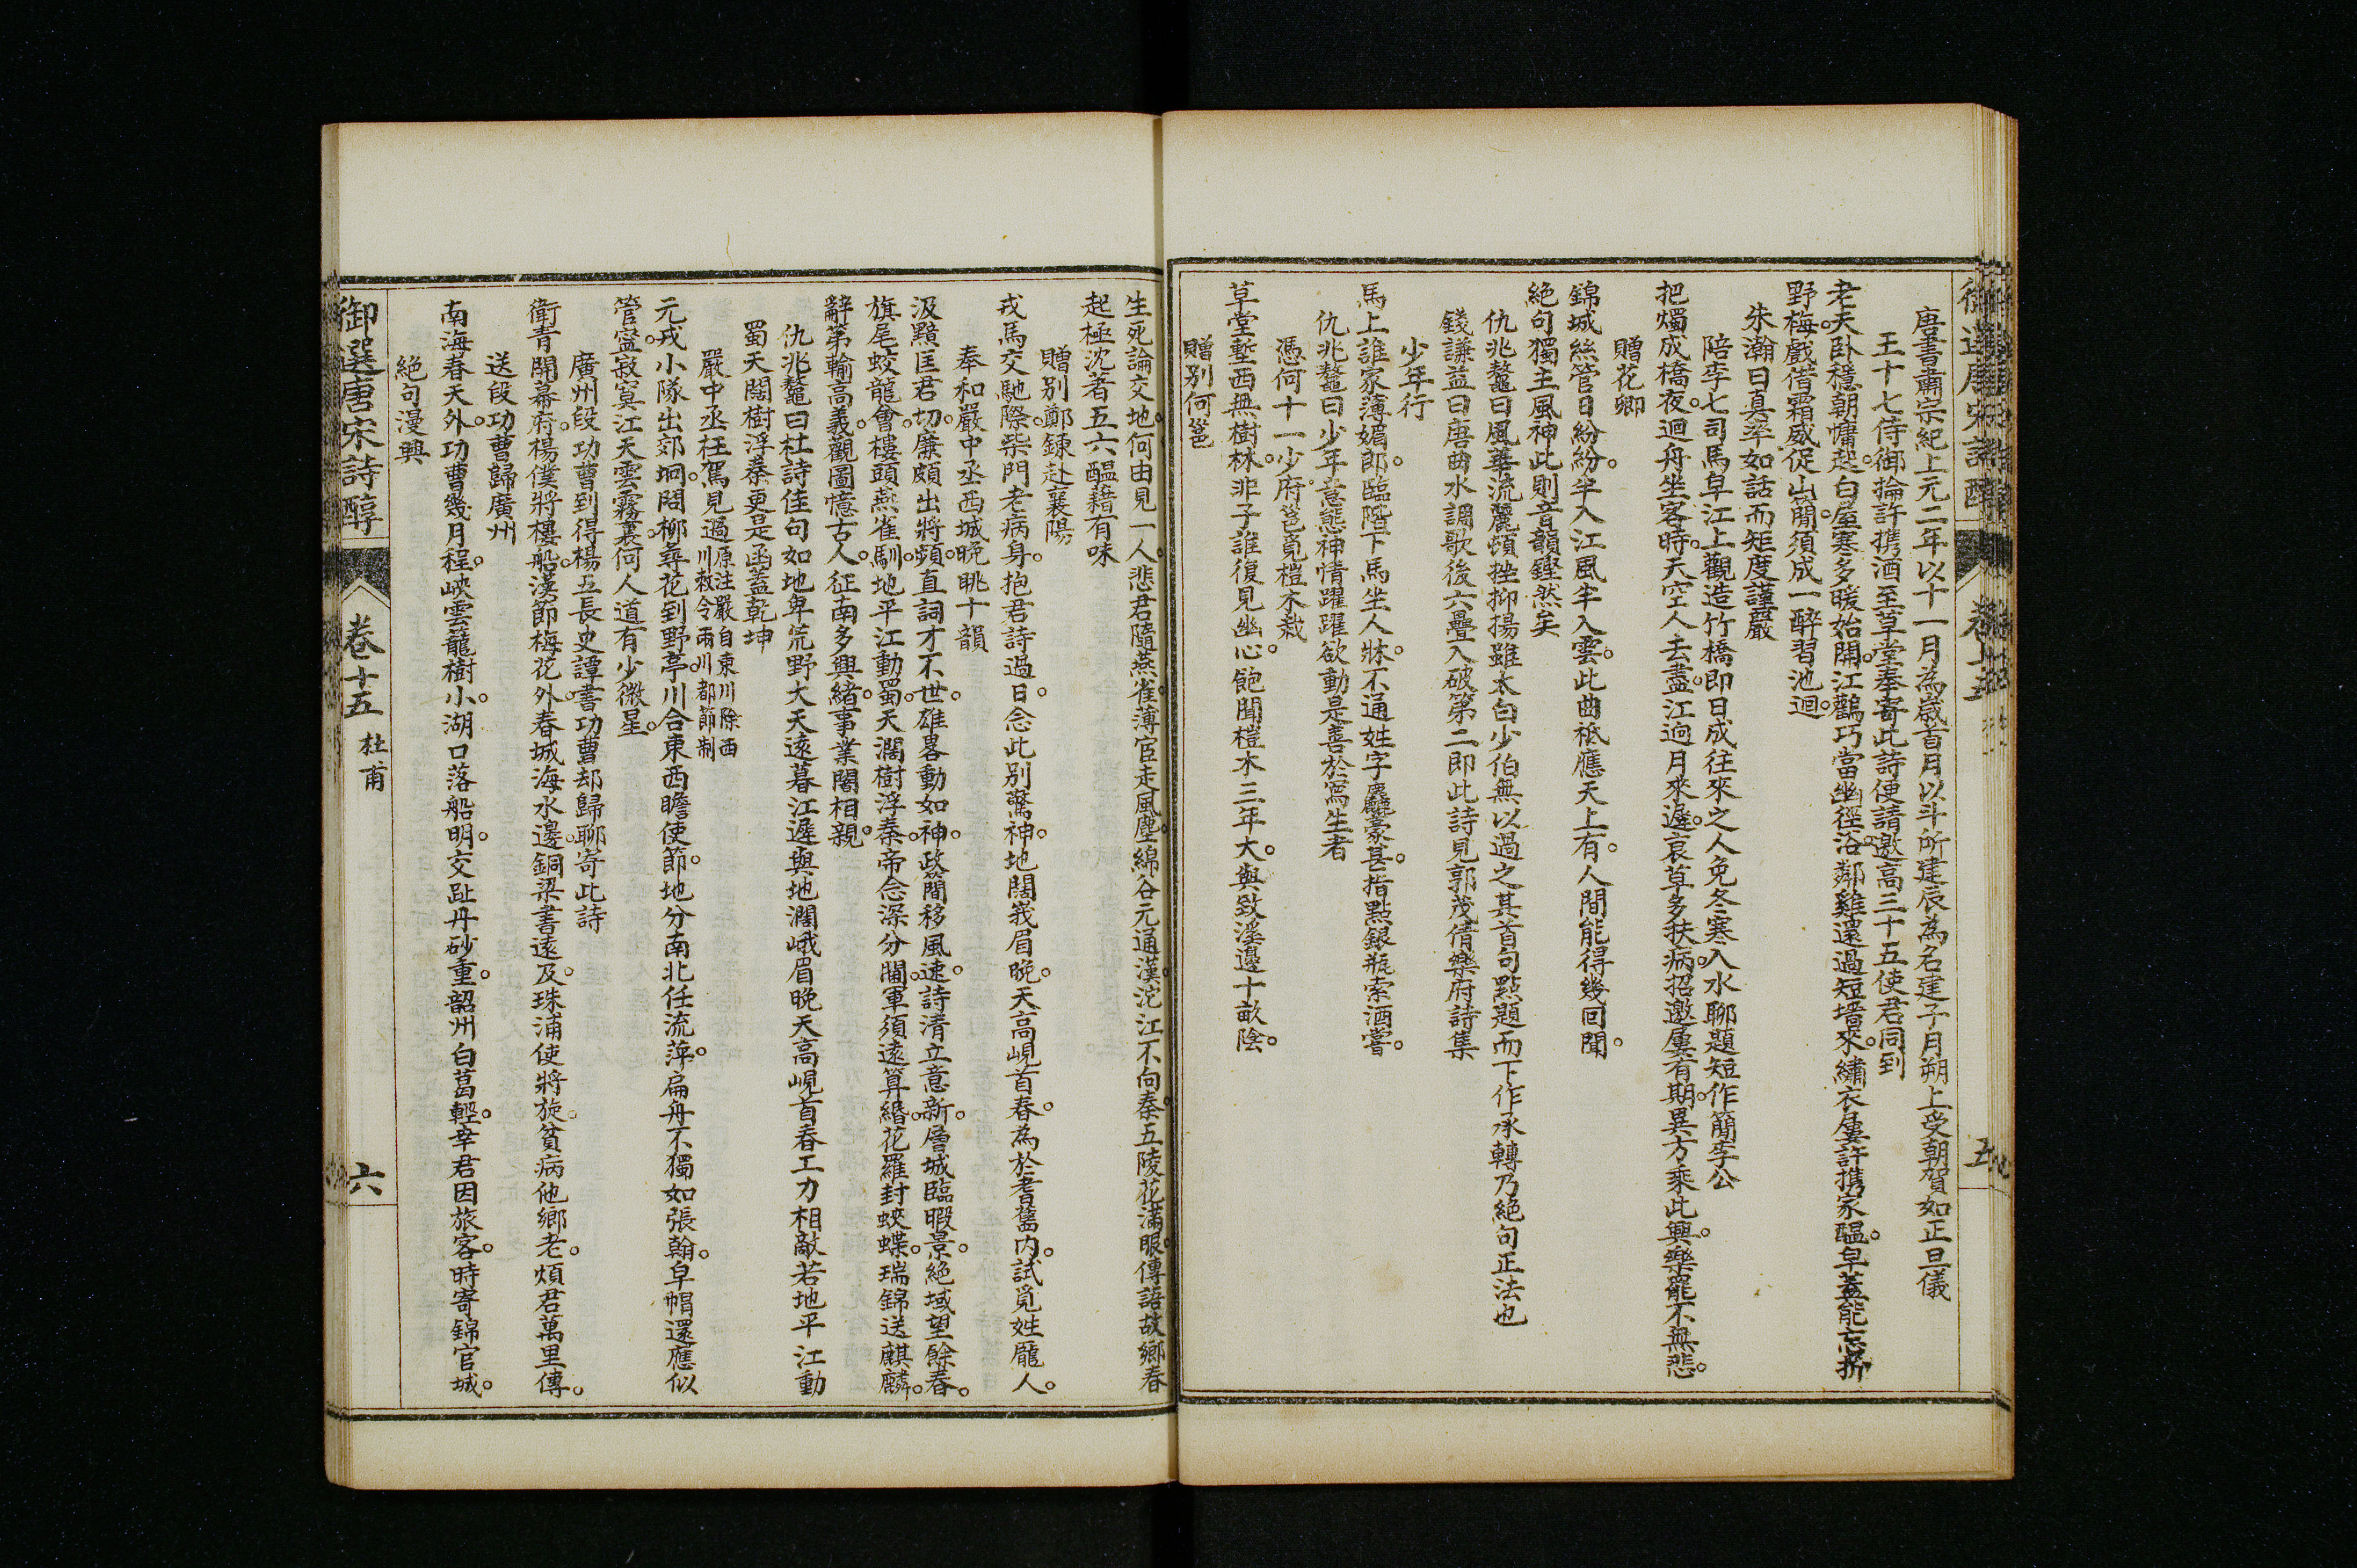 唐書肅宗紀上元二年以十一月為歲首月以斗所建辰為名建子月朔上受朝賀如正旦儀
王十七侍御掄許携酒至草堂奉寄此詩便請邀高三十五使君同到
老夫卧穩朝慵起。白屋寒多暖始開。江鸛巧當幽徑浴。鄰雞還過短墻來。繡衣屢許携家醞。皁蓋能忘折
野梅。戲借霜威促山簡。須成一醉習池迴。
朱瀚曰真率如話而矩度謹嚴
陪李七司馬皁江上觀造竹橋即日成往來之人免冬寒入水聊題短作簡李公
把燭成橋夜。迴舟坐客時。天空人去盡。江逈月來遲。衰草多扶病。招邀屢有期。異方乘此興。樂罷不無悲。
贈花卿
錦城絲管日紛紛。半入江風半入雲。此曲祗應天上有。人間能得幾回聞。
絕句獨主風神此則音韻鏗然矣
仇兆鼇曰風華流麗頓挫抑揚雖太白少伯無以過之其首句點題而下作承轉乃絕句正法也
錢謙益曰唐曲水調歌後六疊入破第二即此詩見郭茂倩樂府詩集
少年行
馬上誰家薄媚郎。臨階下馬坐人牀。不通姓字麤豪甚。指點銀瓶索酒嘗。
仇兆鼇曰少年意態神情躍躍欲動是善於寫生者
憑何十一少府邕覓榿木栽
草堂塹西無樹林。非子誰復見幽心。飽聞榿木三年大。與致溪邊十畝陰。
贈別何邕
生死論交地。何由見一人。悲君隨燕雀。薄宦走風塵。綿谷元通漢。沱江不向秦。五陵花滿眼。傳語故鄉春
起極沈著五六醞藉有味
贈別鄭鍊赴襄陽
戎馬交馳際。柴門老病身。抱君詩過日。念此別驚神。地闊峩眉晚。天高峴首春。為於耆舊內。試覓姓龐人。
奉和嚴中丞西城晚眺十韻
汲黯匡君切。廉頗出將頻。直詞才不世。雄畧動如神。政簡移風速。詩清立意新。層城臨暇景。絕域望餘春。
旗尾蛟龍會。樓頭燕雀馴。地平江動蜀。天濶樹浮秦。帝念深分閫。軍須遠算緡。花羅封蛺蝶。瑞錦送麒麟。
辭第輸高義。觀圖憶古人。征南多興緒。事業闇相親。
仇兆鼇曰杜詩佳句如地卑荒野大天遠暮江遲與地濶峨眉晚天高峴首春工力相敵若地平江動
蜀天闊樹浮秦更是函蓋乾坤
嚴中丞枉駕見過原注嚴自東川除西川敕令兩川都節制
元戎小隊出郊坰。問柳尋花到野亭。川合東西瞻使節。地分南北任流萍。扁舟不獨如張翰。皁帽還應似
管寧。寂寞江天雲霧裏。何人道有少微星。
廣州段功曹到得楊五長史譚書功曹却歸聊寄此詩
衛青開幕府。楊僕將樓船。漢節梅花外。春城海水邊。銅梁書遠及。珠浦使將旋。貧病他鄉老。煩君萬里傳。
送段功曹歸廣州
南海春天外。功曹幾月程。峽雲籠樹小。湖口落船明。交趾丹砂重。韶州白葛輕。幸君因旅客。時寄錦官城。
絕句漫興
御選唐宋詩醇
卷十五 杜甫
六